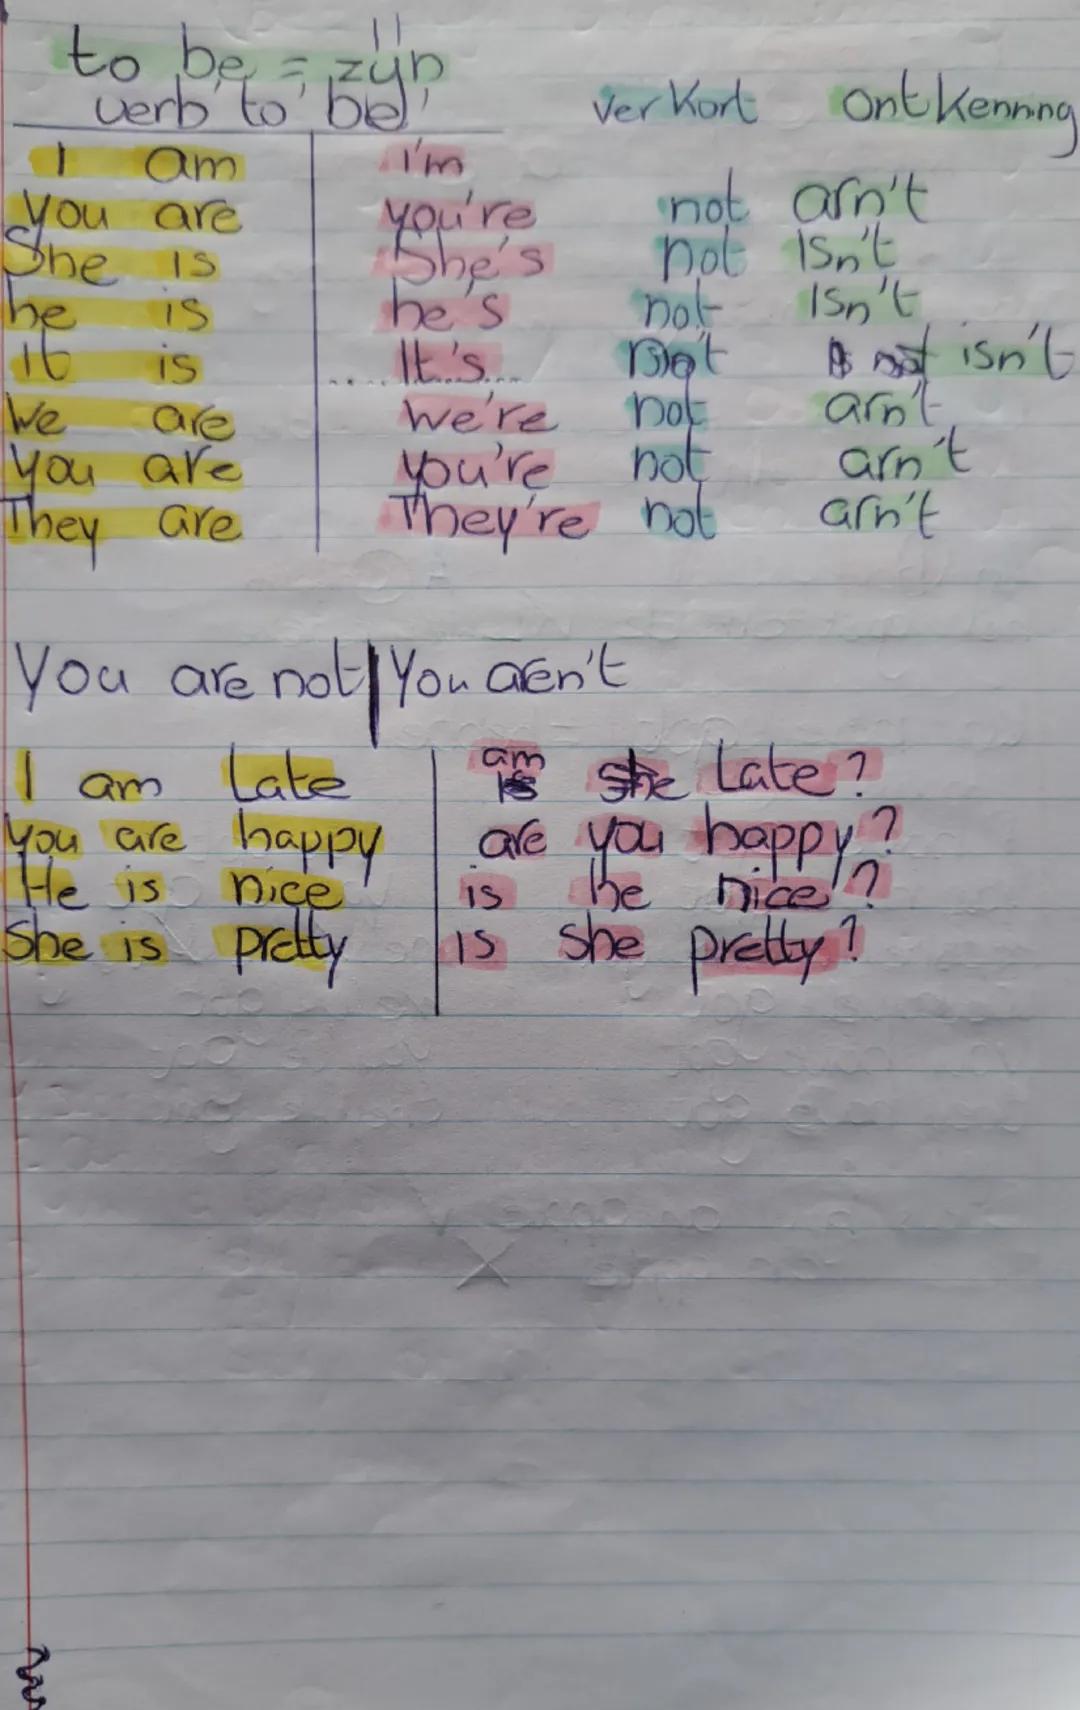 to be = zijn
verb 'to be' verkort ontkenning
I am I'm
you are you're not arn't
She is She's not isn't
he is he's not isn't
it is It's not isn't
we are we're not arn't
you are you're not arn't
They are They're not arn't
You are not | You aren't
I am late am late?
you are happy are you happy?
He is nice is he nice?
She is pretty is she pretty?